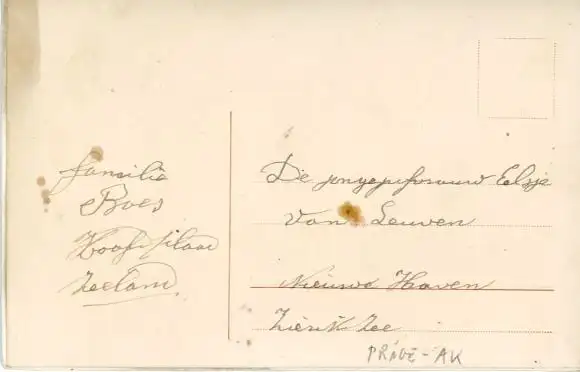 familie
Boes
Hoofdplaat
Zeeland
De jongejufvrouw Elsje
van Leuwen
Nieuwe Haaven
Zierikzee
PRÄGE-AK